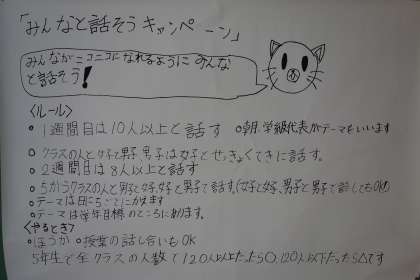 「みんなと話そうキャンペーン」
みんながニコニコになれるように みんな
と話そう!
〈ルール〉
○1週間目は10人以上と話す ○朝、学級代表がテーマをいいます
○クラスの人と女子で男子、男子は女子とせっきょくてきに話す。
○2週間目は8人以上と話す
○ちがうクラスの人と男子と女子、女子と男子で話す。(女子と女子、男子と男子で話してもOK)
○テーマは日にちごとにかえます
○テーマは学年目標のところにあります。
〈やるとき〉
○ほうか ○授業の話し合いもOK
5年生で全クラスの人数で120人以上だったら○、120人以下だったら△です